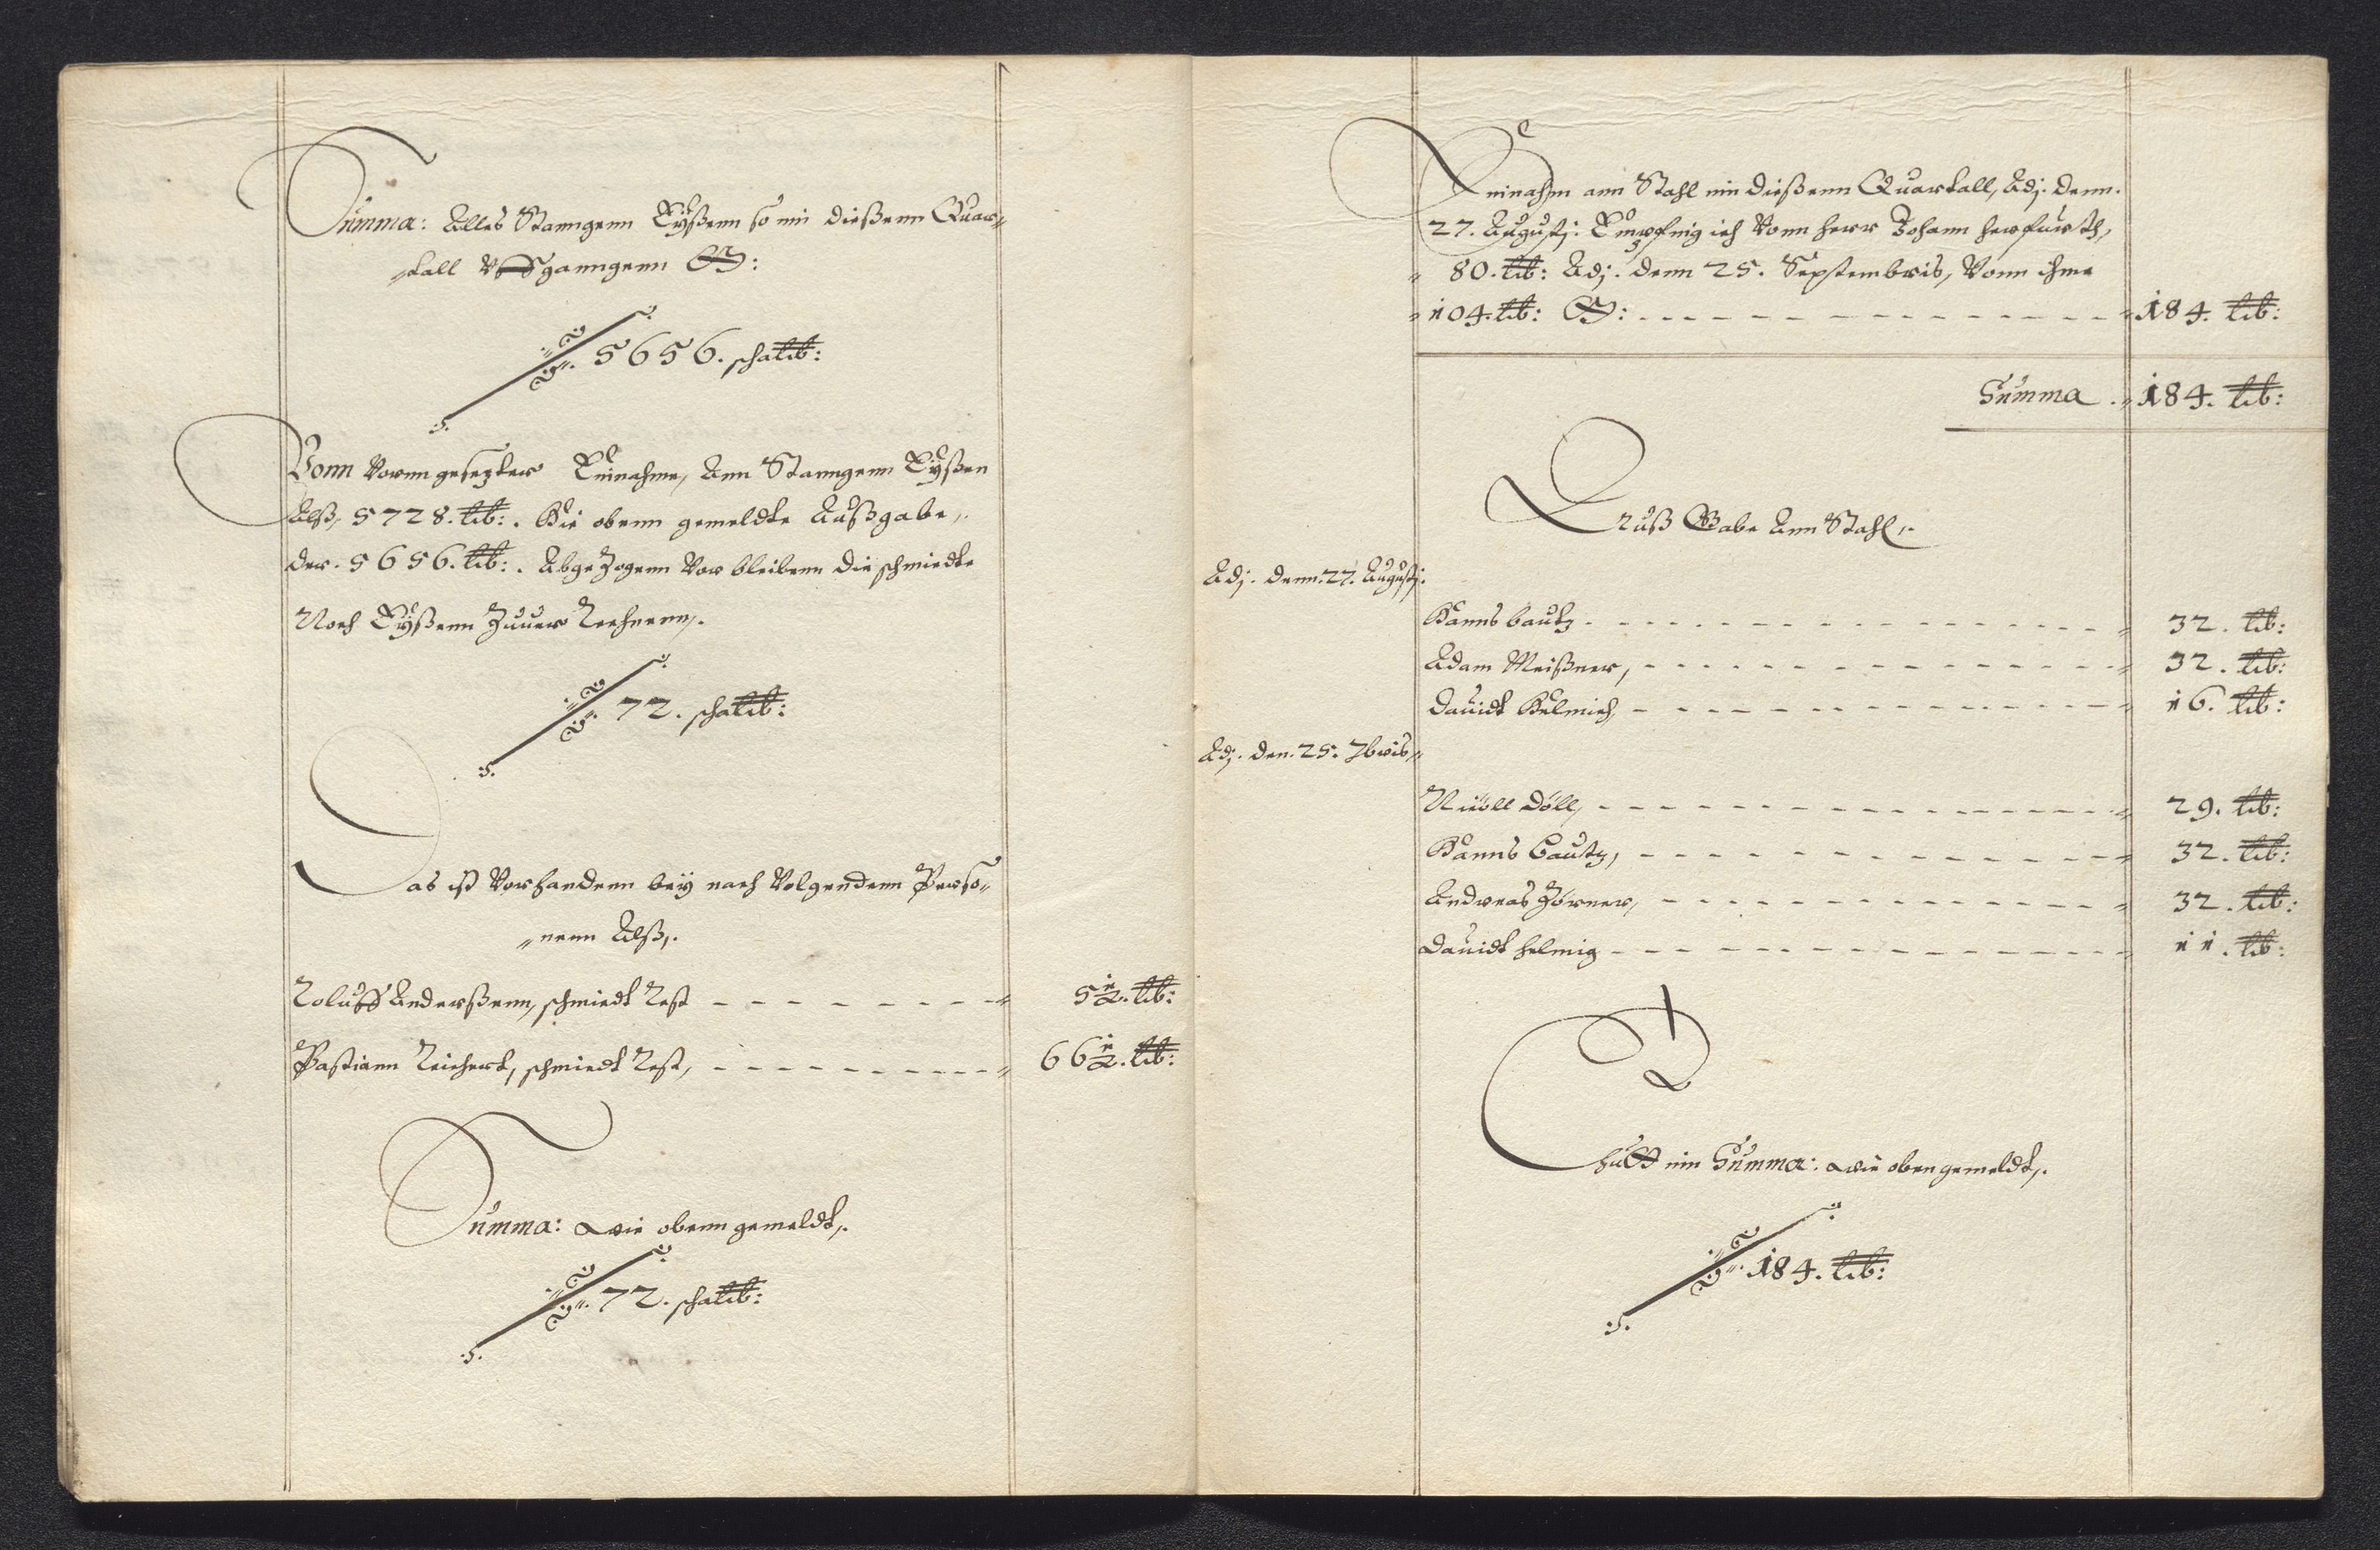 Summa: Alles Stanngenn Eyßenn so inn dießenn Quar„
„tall Vßganngenn Ist:
5656. schalib:
Vonn Vornn gesezter Einnahme, Ann Stanngenn Eyßen
Alß, 5728. lib: . Die obenn gemeldte Außgabe,.
der. 5656. lib: . Abgezogenn Vor bleibenn die schmiedte
Noch Eyßenn Zuuer Rechnenn,.
72. schalib:
Das ist Vorhandenn bey nach Volgendenn Perso„
„nenn Alß,.
Roluff Anderßenn, schmiedt Rest 5 1/2. lib:
Bastiann Reichert, schmiedt Rest, 66 1/2. lib:
Summa: wie obenn gemeldt,.
72. schalib:
Einnahm ann Stahl inn dießenn Quartall, Adj. denn.
27. Augustj. Empfing ich Vonn herr Johann herfurth,
80. lib: Adj. denn 25. Septembris, Vonn ihme
104. lib: Ist: 184. lib:
Summa 184. lib:
Auß Gabe Ann Stahl,.
Adj. denn. 27. Augustj:
Hanns bautz 32. lib:
Adam Meißner, 32. lib:
Dauidt Helmich 16. lib:
Adj. den. 25. 7bris„
Nicoll Döll, 29. lib:
Hanns Bautz, 32. lib:
Andreas Zörner, 32. lib:
Dauidt helmig 11. lib:
Thutt inn Summa: wie oben gemeldt,.
184. lib: